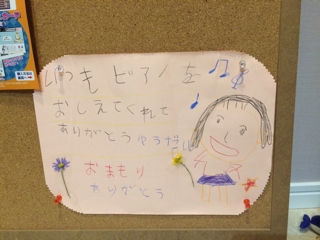 いつもピアノを
おしえてくれて
ありがとう
おまもり
ありがとう